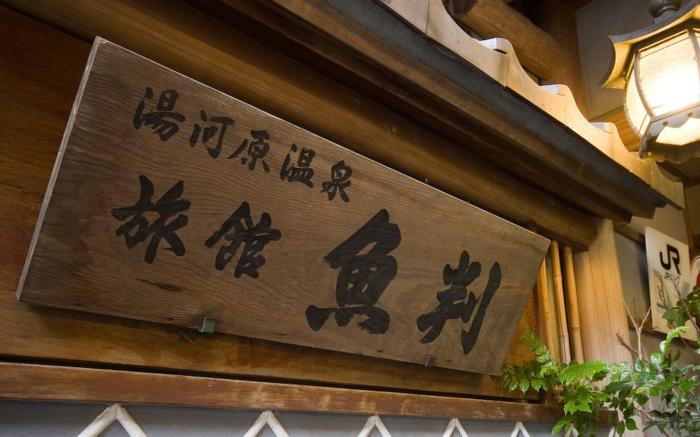 湯河原温泉
旅館 魚判
JR